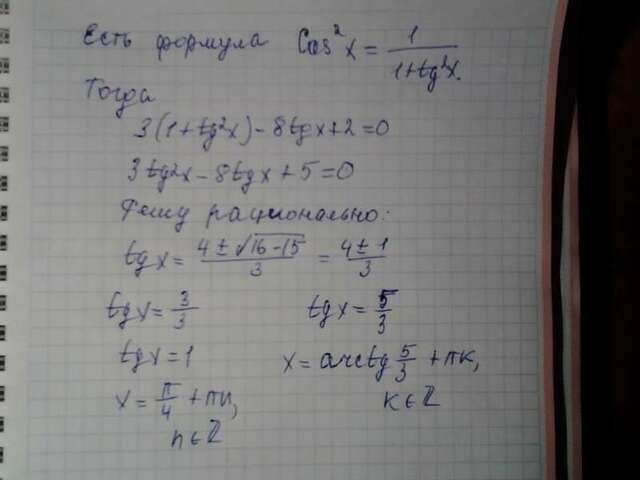 Есть формула Cos²x = 1/(1+tg²x).
Тогда
3(1+tg²x) - 8tgx+2=0
3tg²x - 8tgx + 5 = 0
Решу рационально:
tgx = (4±√(16-15))/3 = (4±1)/3
tgx = 3/3 tgx = 5/3
tgx = 1 x = arctg 5/3 + πk,
x = π/4 + πn, k∈Z
n∈Z